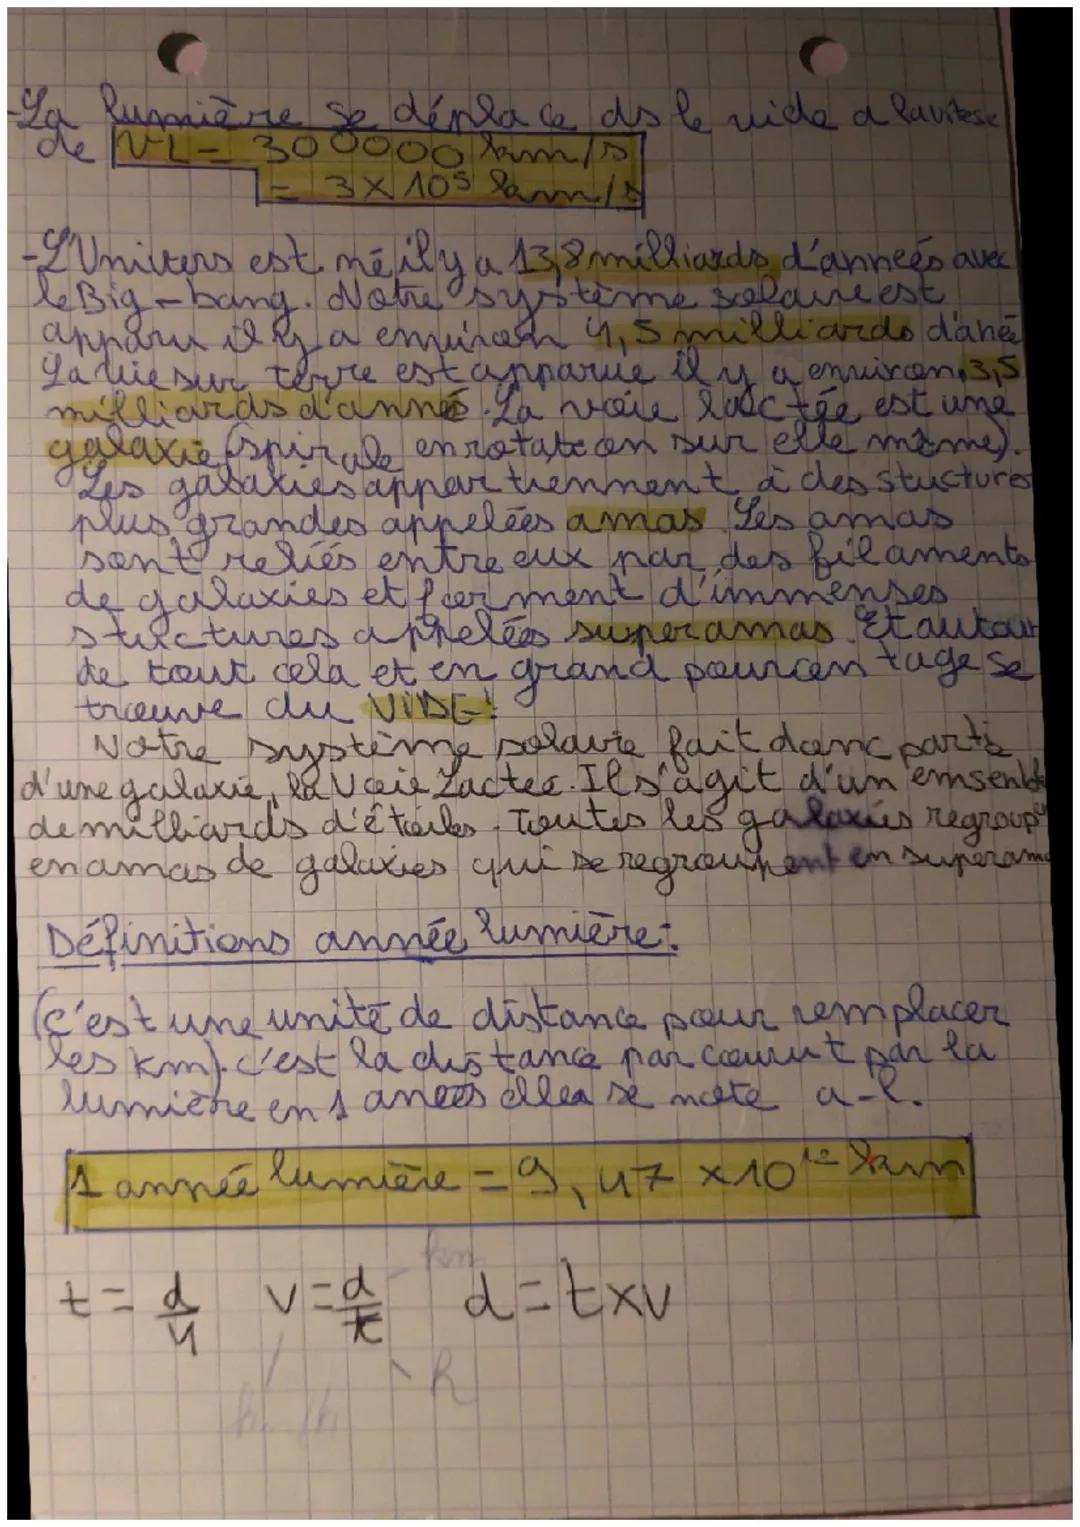 -La lumière se déplace ds le vide a la vitesse
de VL = 300000 km/s
= 3 x 10⁵ km/s
-L'Univers est né il y a 13,8 milliards d'anneés avec
le Big-bang. Notre système solaire est
apparu il y a environ 4,5 milliards d'ané
La vie sur terre est apparue il y a environ 3,5
milliards d'anneé. La voie lactée est une
galaxie (spirale en rotation sur elle même).
Les galaxies appartiennent à des stuctures
plus grandes appelées amas. Les amas
sont reliés entre eux par des filaments
de galaxies et forment d'immenses
structures appelées superamas. Et autour
de tout cela et en grand pourcentage se
trouve du VIDE!
Notre système solaire fait donc partie
d'une galaxie, la Voie Lactée. Il s'agit d'un emsemble
de milliards d'étoiles. Toutes les galaxies regroup
en amas de galaxies qui se regroupent en superama
Définitions année lumière:
(c'est une unité de distance pour remplacer
les km). c'est la distance parcourut par la
lumière en 1 aneés elle se note a-l.
1 année lumière = 9,47 x 10¹² km
t = d/v v = d/t d = t x v
km
h